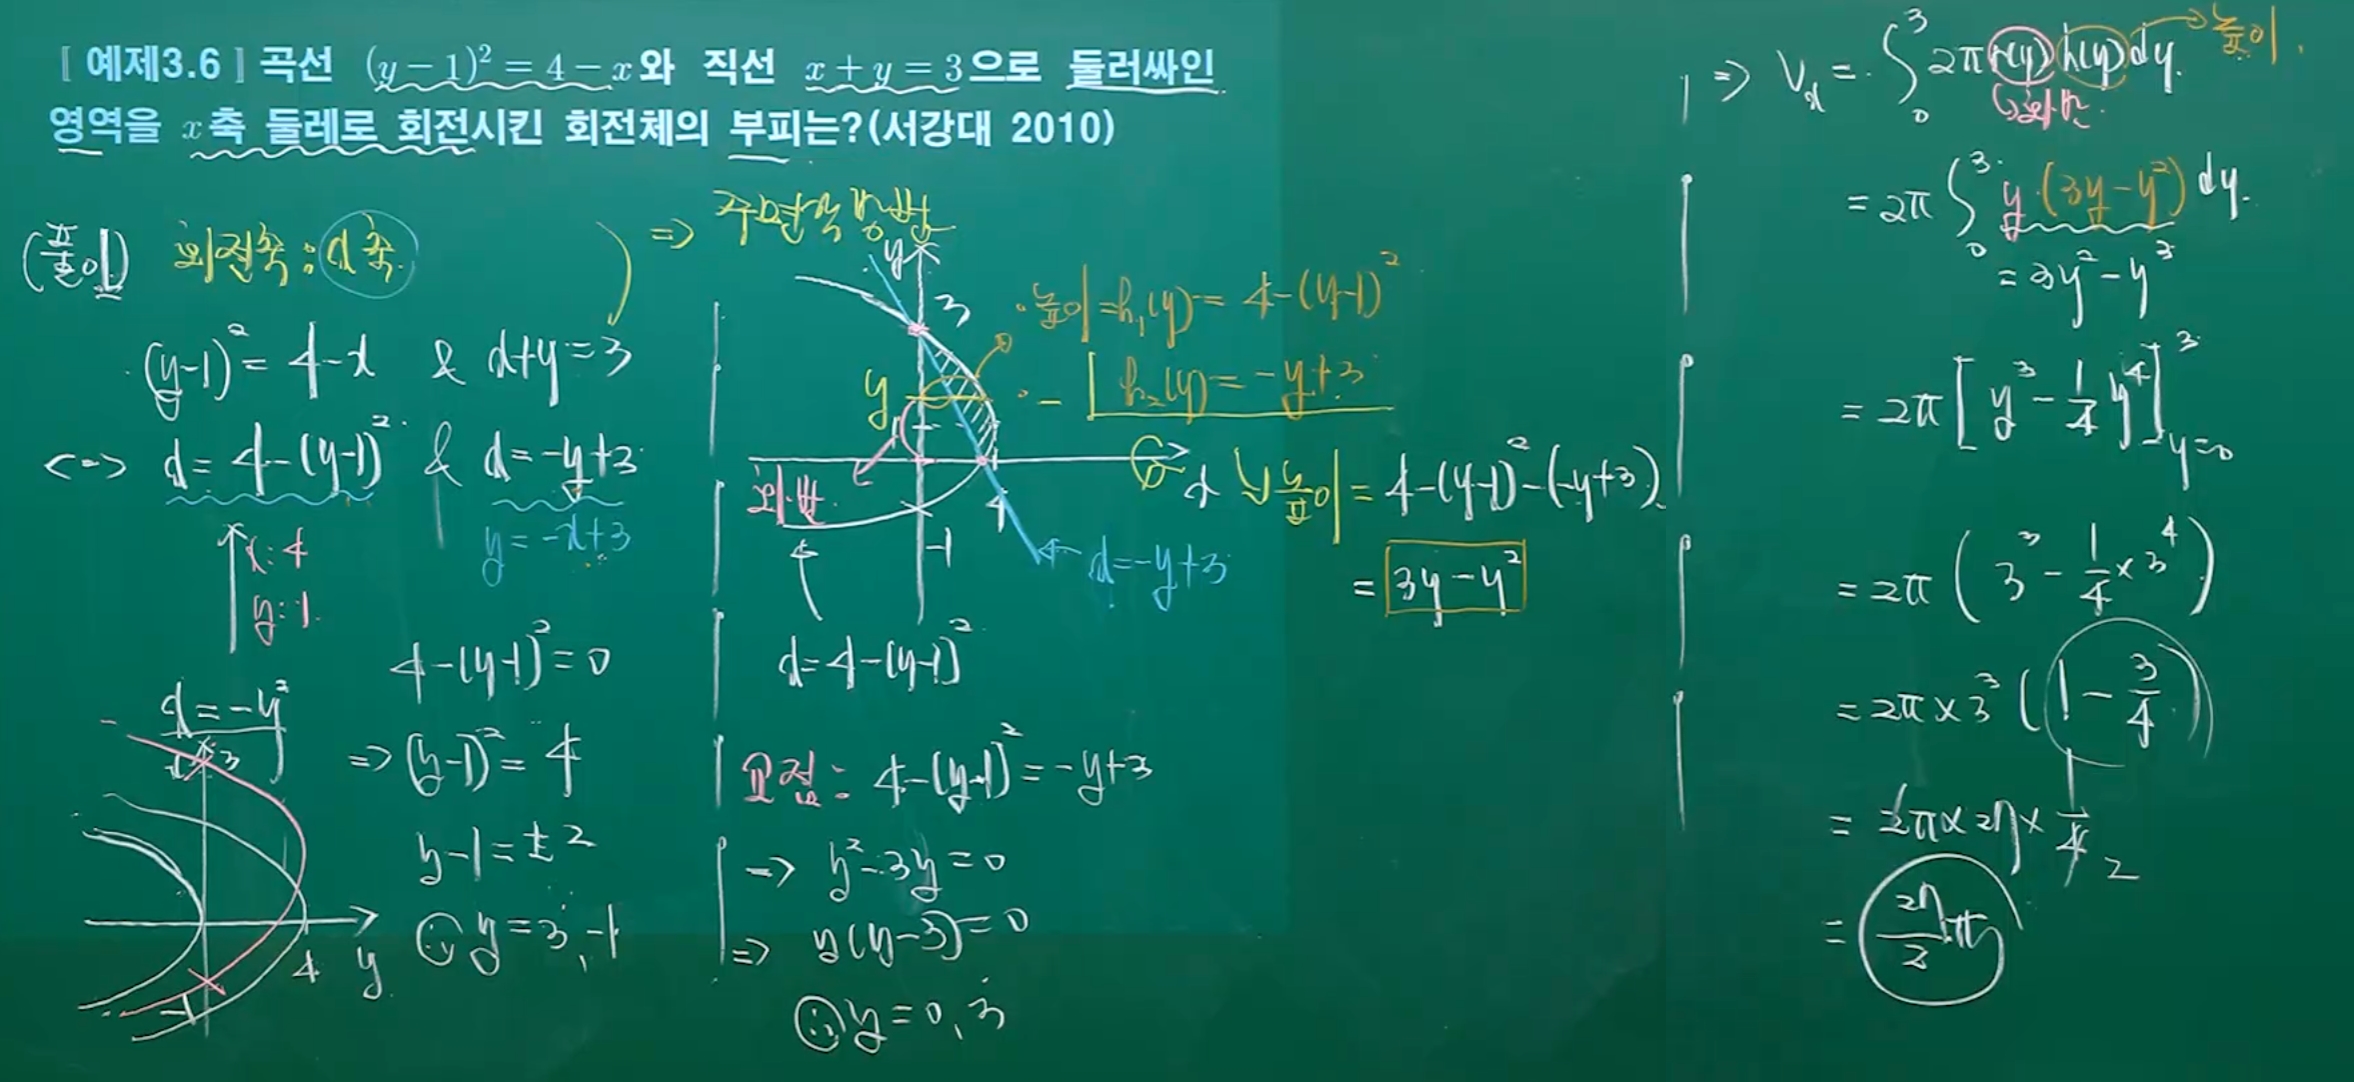 [예제3.6] 곡선 (y-1)² = 4-x와 직선 x+y=3으로 둘러싸인
영역을 x축 둘레로 회전시킨 회전체의 부피는?(서강대 2010)
(풀이) 회전축 : x축 ) => 주면각 방법
(y-1)² = 4-x & x+y=3
<=> x = 4-(y-1)² & x = -y+3
x: 4
y: 1
y = -x+3
4-(y-1)² = 0
=> (y-1)² = 4
y-1 = ±2
∴ y = 3, -1
x = -y²
x
3
4
y
-1
y
3
y
1
회반
4
x
-1
x = -y+3
x = 4-(y-1)²
높이 = h₁(y) = 4-(y-1)²
- h₂(y) = -y+3
높이 = 4-(y-1)²-(-y+3)
= 3y-y²
교점 : 4-(y-1)² = -y+3
=> y²-3y = 0
=> y(y-3) = 0
∴ y = 0, 3
=> Vx = ∫₀³ 2π r(y) h(y) dy → 높이
회반
= 2π ∫₀³ y (3y-y²) dy
= 3y²-y³
= 2π [y³ - 1/4 y⁴]³ y=0
= 2π (3³ - 1/4 × 3⁴)
= 2π × 3³ (1 - 3/4)
= 2π × 27 × 1/4 2
= 27/2 π